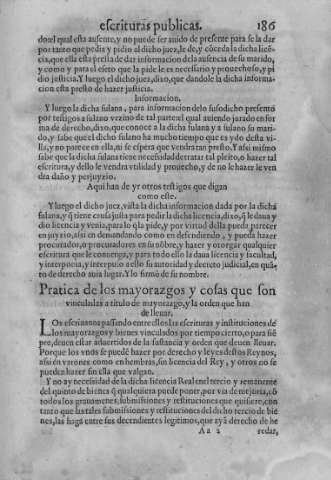 escrituras publicas. 186
do el qual esta ausente, y no puede ser auido de presente para se la dar
por tanto que pedia y pidio al dicho juez, le de, y cõceda la dicha licẽ-
cia, que ella esta presta de dar informacion de la ausencia de su marido,
y como y para el eseto que la pide le es necessario y prouechoso, y pi
dio justicia. Y luego el dicho juez, dixo, que dandole la dicha informa-
cion esta presto de hazer justicia.
Informacion.
Y luego la dicha fulana, para informacion de lo susodicho presentò
por testigos a fulano vezino de tal parte el qual auiendo jurado en for
ma de derecho, dixo, que conoce a la dicha fulana y a fulano su mari-
do, y sabe que el dicho fulano ha mucho tiempo que es ydo desta vi-
lla, y no parece en ella, ni se espera que vendra tan presto. Y assi mismo
sabe que la dicha fulana tiene necessidad de tratar tal pleito, o hazer tal
escritura, y dello le vendra vtilidad y prouecho, y de no le hazer le ven
dra daño y perjuyzio.
Aqui han de yr otros testigos que digan
como este.
Y luego el dicho juez, vista la dicha informacion dada por la dicha
fulana, y q̃ tiene causa justa para pedir la dicha licencia, dixo, q̃ le daua y
dio licencia y venia, para lo q̃ la pide, y por virtud della pueda parecer
en juyzio, assi en demandando como en defendiendo, y pueda hazer
procurador, o procuradores en su nõbre, y hazer y otorgar qualquier
escritura que le conuenga, y para todo ello la daua licencia y facultad,
y interponia, y interpuso a ello su autoridad y decreto judicial, en quã-
to de derecho auia lugar. Y lo firmò de su nombre.
Pratica de los mayorazgos y cosas que son
vinculadas a titulo de mayorazgo, y la orden que han
de lleuar.
LOs escriuanos passando entre ellos las escrituras e instituciones de
los mayorazgos y bienes vinculados por tiempo cierto, o para siẽ
pre, deuen estar aduertidos de la sustancia y orden que deuen lleuar.
Porque los vnos se puedẽ hazer por derecho y leyes destos Reynos,
assi en varones como en hembras, sin licencia del Rey, y otros no se
pueden hazer sin ella que valgan.
Y no ay necessidad de la dicha licencia Real en el tercio y remanente
del quinto de bienes q̃ qualquiera puede poner, por via de mejoria, cõ
todos los grauamenes, submissiones y restituciones que quisiere, con
tanto que las tales submissiones y restituciones del dicho tercio de bie
nes, las haga entre sus decendientes legitimos, que aya derecho de he
Aa 2 redar,